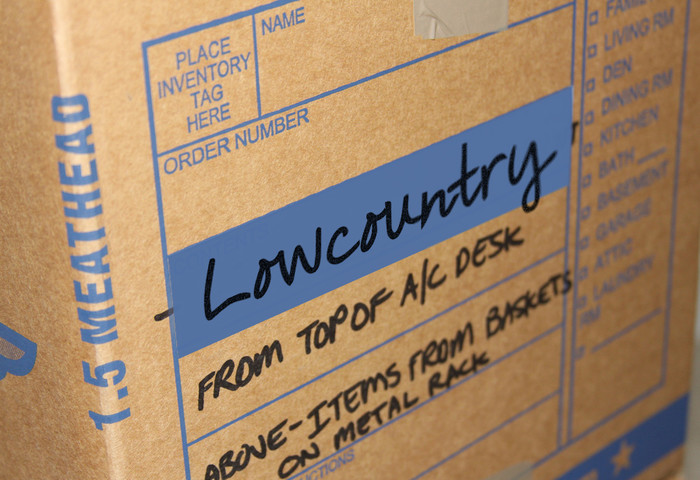 PLACE
INVENTORY
TAG
HERE
NAME
ORDER NUMBER
Lowcountry
FROM TOP OF A/C DESK
ABOVE-ITEMS FROM BASKETS
ON METAL RACK
1.5 MEATHEAD
LIVING RM
DEN
DINING RM
KITCHEN
BATH
BASEMENT
GARAGE
ATTIC
LAUNDRY
RM